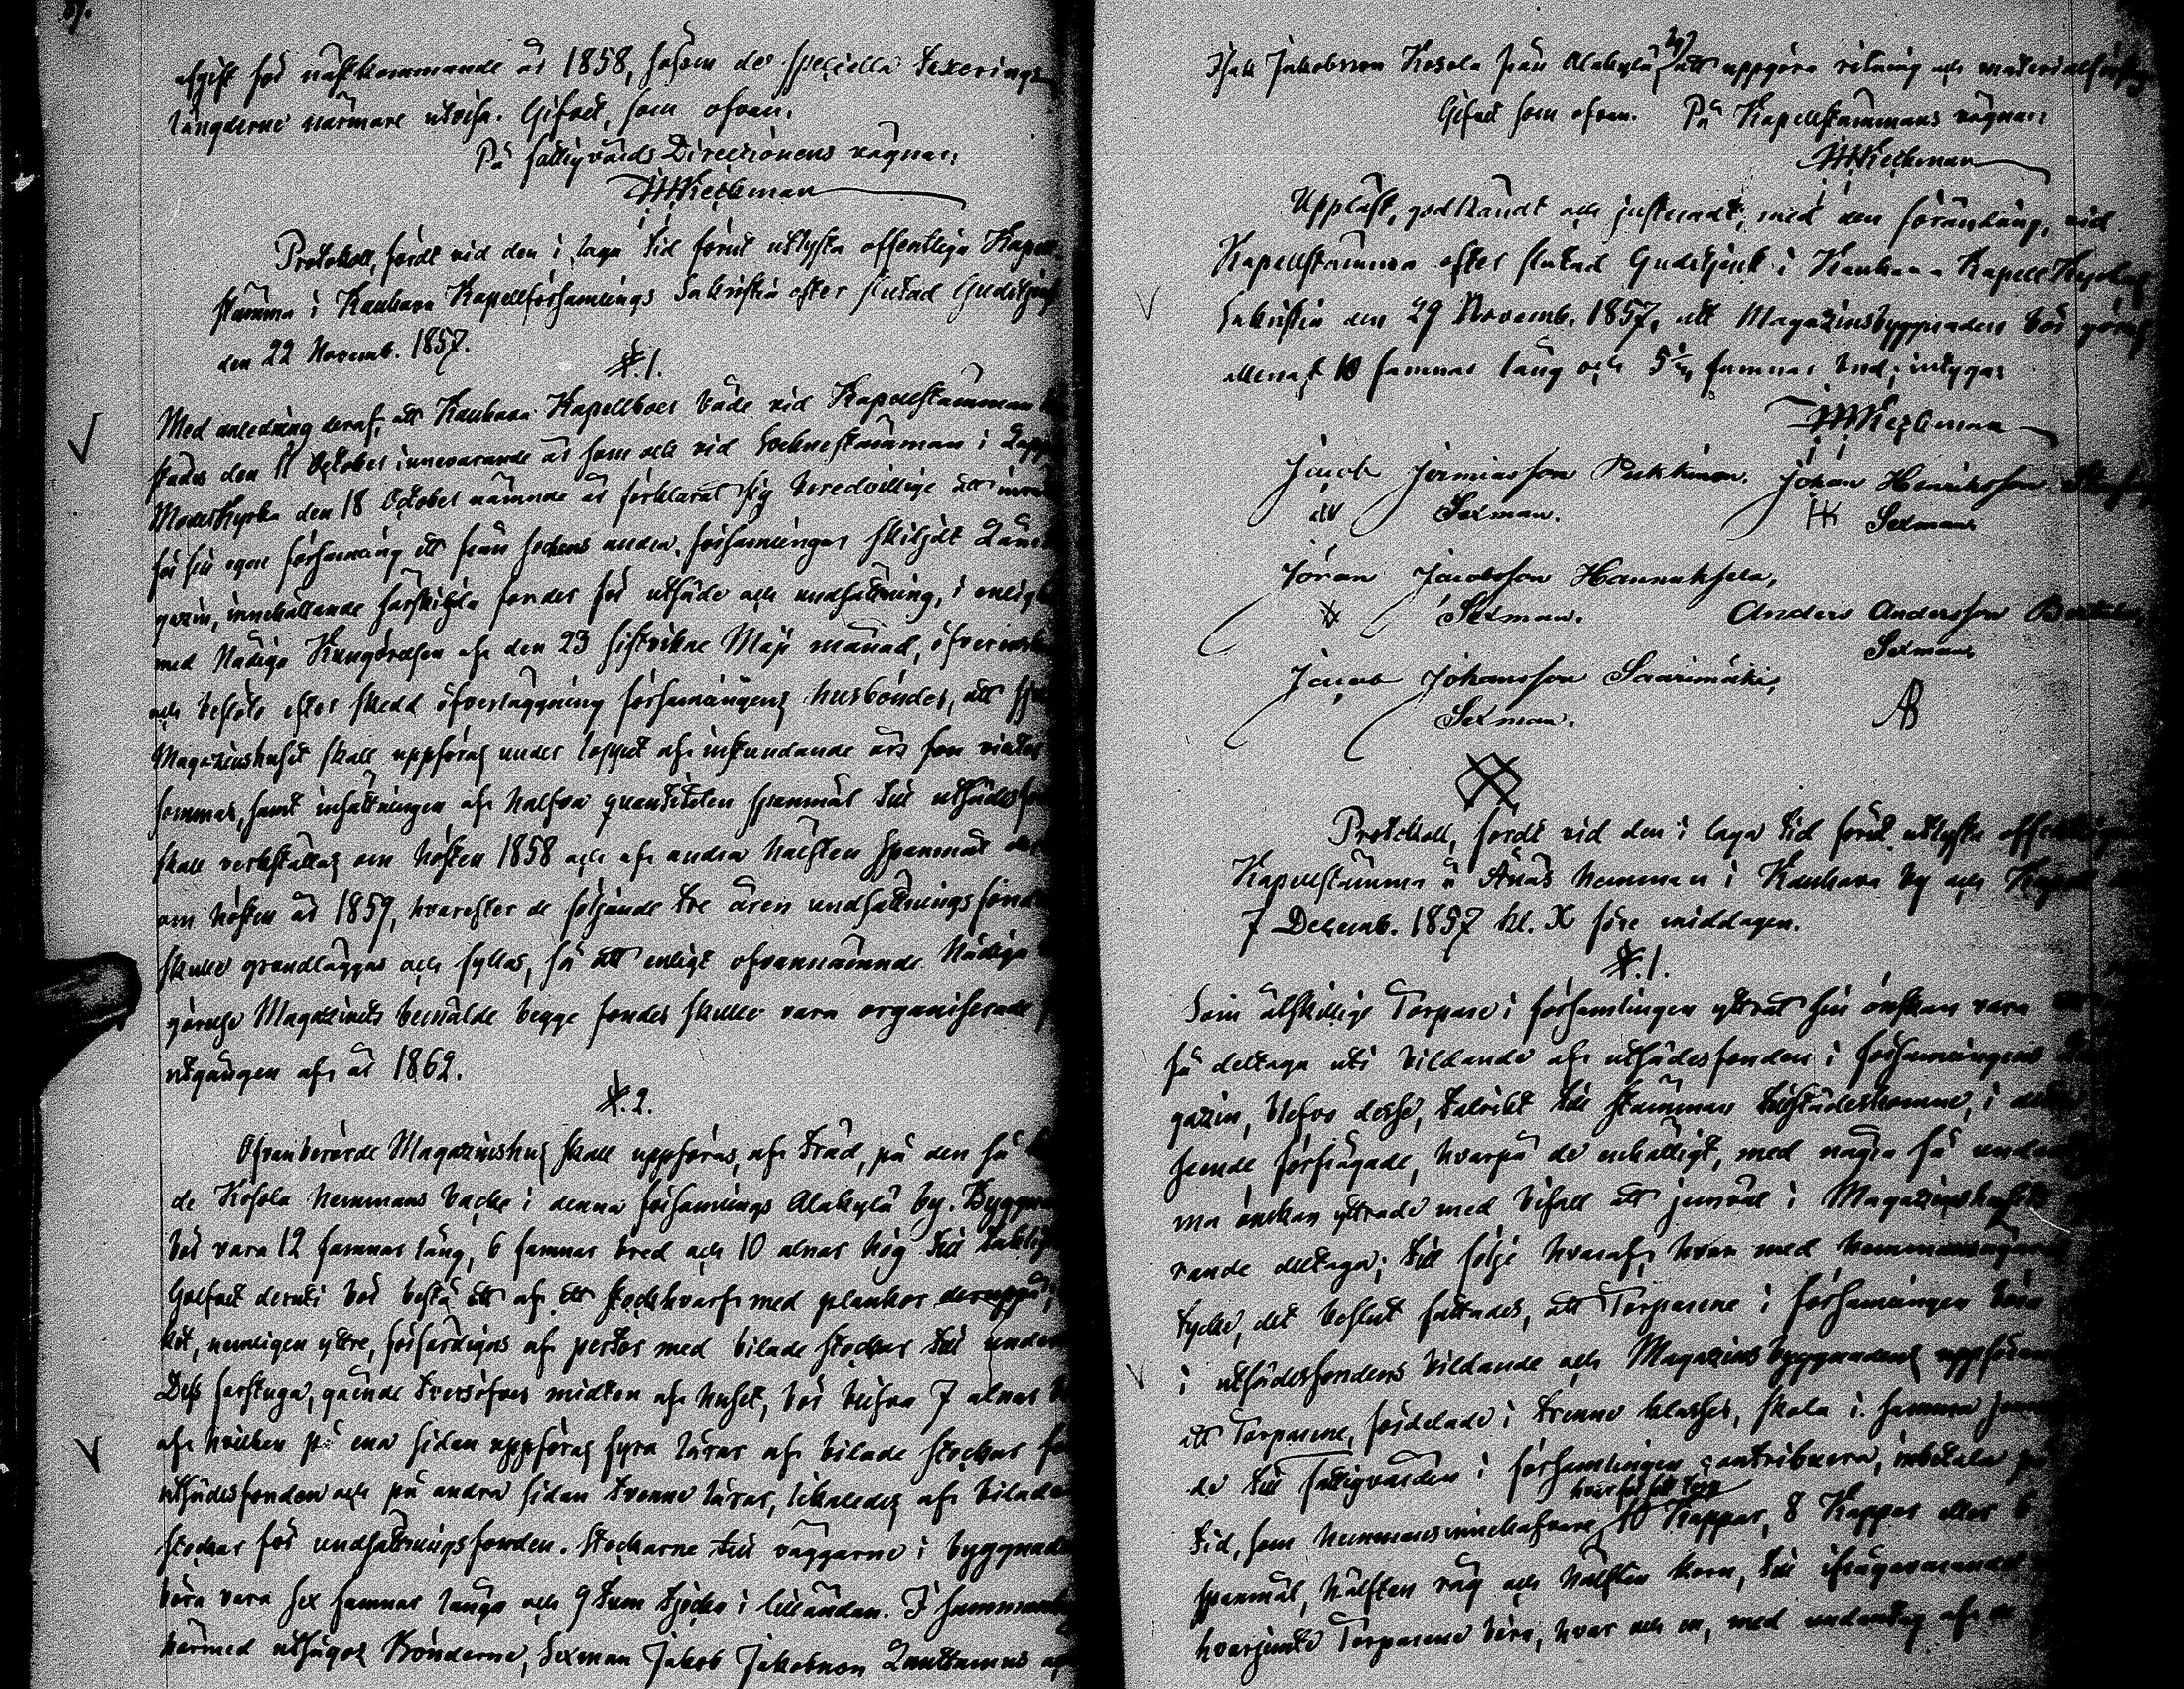 afgift för nästkommande år 1858, såsom de speciella Taxerings
längderne närmare utvisa. Gifvet, som ofvan.
På fattigvårds Directionens vägnar,
Wieckman
Protokoll, fördt vid den i laga tid förut utlysta offentliga Kapell
stämma i Kauhava Kapellförsamlings Sakristia efter slutad Gudstjenst
den 22 Novemb. 1857.
§.1.
Med anledning deraf, att Kauhava Kapellboer både vid Kapellstämman
den 11 October innevarande år som ock vid Socknestämman i Lappo
Moderkyrka den 18 October nämnde år förklarat sig beredvillige att
för sin egen församling ett från sockens andra församlingar skiljdt Låne
gazin, innehållande särskilda fonder för utsäde och undsättning, i enlighet
med Nådiga Kungörelsen af den 23 sistvikne Maji månad,
och beslöto efter skedd öfverläggning församlingens husbönder, att
Magazinshuset skall uppföras under loppet af instundande års vinter
sommar, samt insättningen af halfva quantiteten spanmål till utsädes
skall verkställas om hösten 1858 och af andra hälften spanmål
om hösten år 1859, hvarefter de följande tre åren undsättningsfonden
skulle grundläggas och fyllas, så att enligt ofvannämnde Nådiga
görelse Magazinets bemälde begge fonder skulle vara organiserade
utgången af år 1862.
§.2.
Ofvanberörde Magazinshus skall uppföras, af träd, på den så
de Kosola hemmans backe i denna församlings Alakylä by. Byggnaden
bör vara 12 famnar lång, 6 famnar bred och 10 alnar hög till
Golfvet deruti bör bestå af ett stockhvarf med plankor deruppå,
nemligen yttre, förfärdigas af pertor med bilade stockar till under
Dess farstuga, gående tversöfver midten af huset, bör blifva 7 alnar
af hvilken på ena sidan uppföras fyra lårar af bilade stockar för
utsädesfonden och på andra sidan trenne lårar, likaledes af bilade
stockar för undsättningsfonden. Stockarne till väggarne i byggnaden
böra vara sex famnar långa och 9 tum tjocka i lilländan. I sammanhang
härmed utsågos Bönderne, Sexman Jakob Jakobsson Lauttamus
Isak Jakobsson Kosola från Alakylä by att uppgöra ritning och materialförslag
Gifvet som ofvan. På Kapellstämmans vägnar
Wieckman
Uppläst, godkändt och justeradt, med den förändring, vid
Kapellstämma efter slutad Gudstjenst i Kauhava Kapell Kyrkas
Sakristia den 29 Novemb. 1857, att Magazinsbyggnaden bör göras
allenast 10 famnar lång och 5½ famnar bred; intygar
Wieckman
Jacob Jeremiasson Pukkinen. Johan Henriksson
Sexman. Sexman
Jöran Jacobsson Hannuksela,
Sexman. Anders Andersson
Sexman
Jacob Johansson Saarimäki,
Sexman. AB
Protokoll, fördt vid den i laga tid förut utlysta offentliga
Kapellstämma å Änäs hemman i Kauhava by och Kapell den
7 Decemb. 1857 kl. X före middagen.
§.1.
Som åtskillige Torpare i församlingen yttrat sin önskan vara
få deltaga uti bildande af utsädesfonden i församlingens
gazin, blefvo desse, talrikt till stämman tillstädeskomne, i detta
seende förfrågade, hvarpå de enhälligt, med några få undantag
ma önskan yttrade med bifall att jemväl i Magazinshusets
rande deltaga; till följe hvaraf, hvar med hemmansegarnes
tycke, det beslut fattades, att Torparene i församlingen böra
i utsädesfondens bildande och Magazinsbyggnadens uppförande
att Torparene, fördelade i trenne klasser, skola i samma
de till fattigvården i församlingen contribuera, inbetala på
tid, som hemmansinnehafvare, 10 Kappar, 8 Kappar eller 6
spanmål, hälften råg och hälften korn, till ifrågavarande
hvarjemte Torparene böra, hvar och en, med undantag af